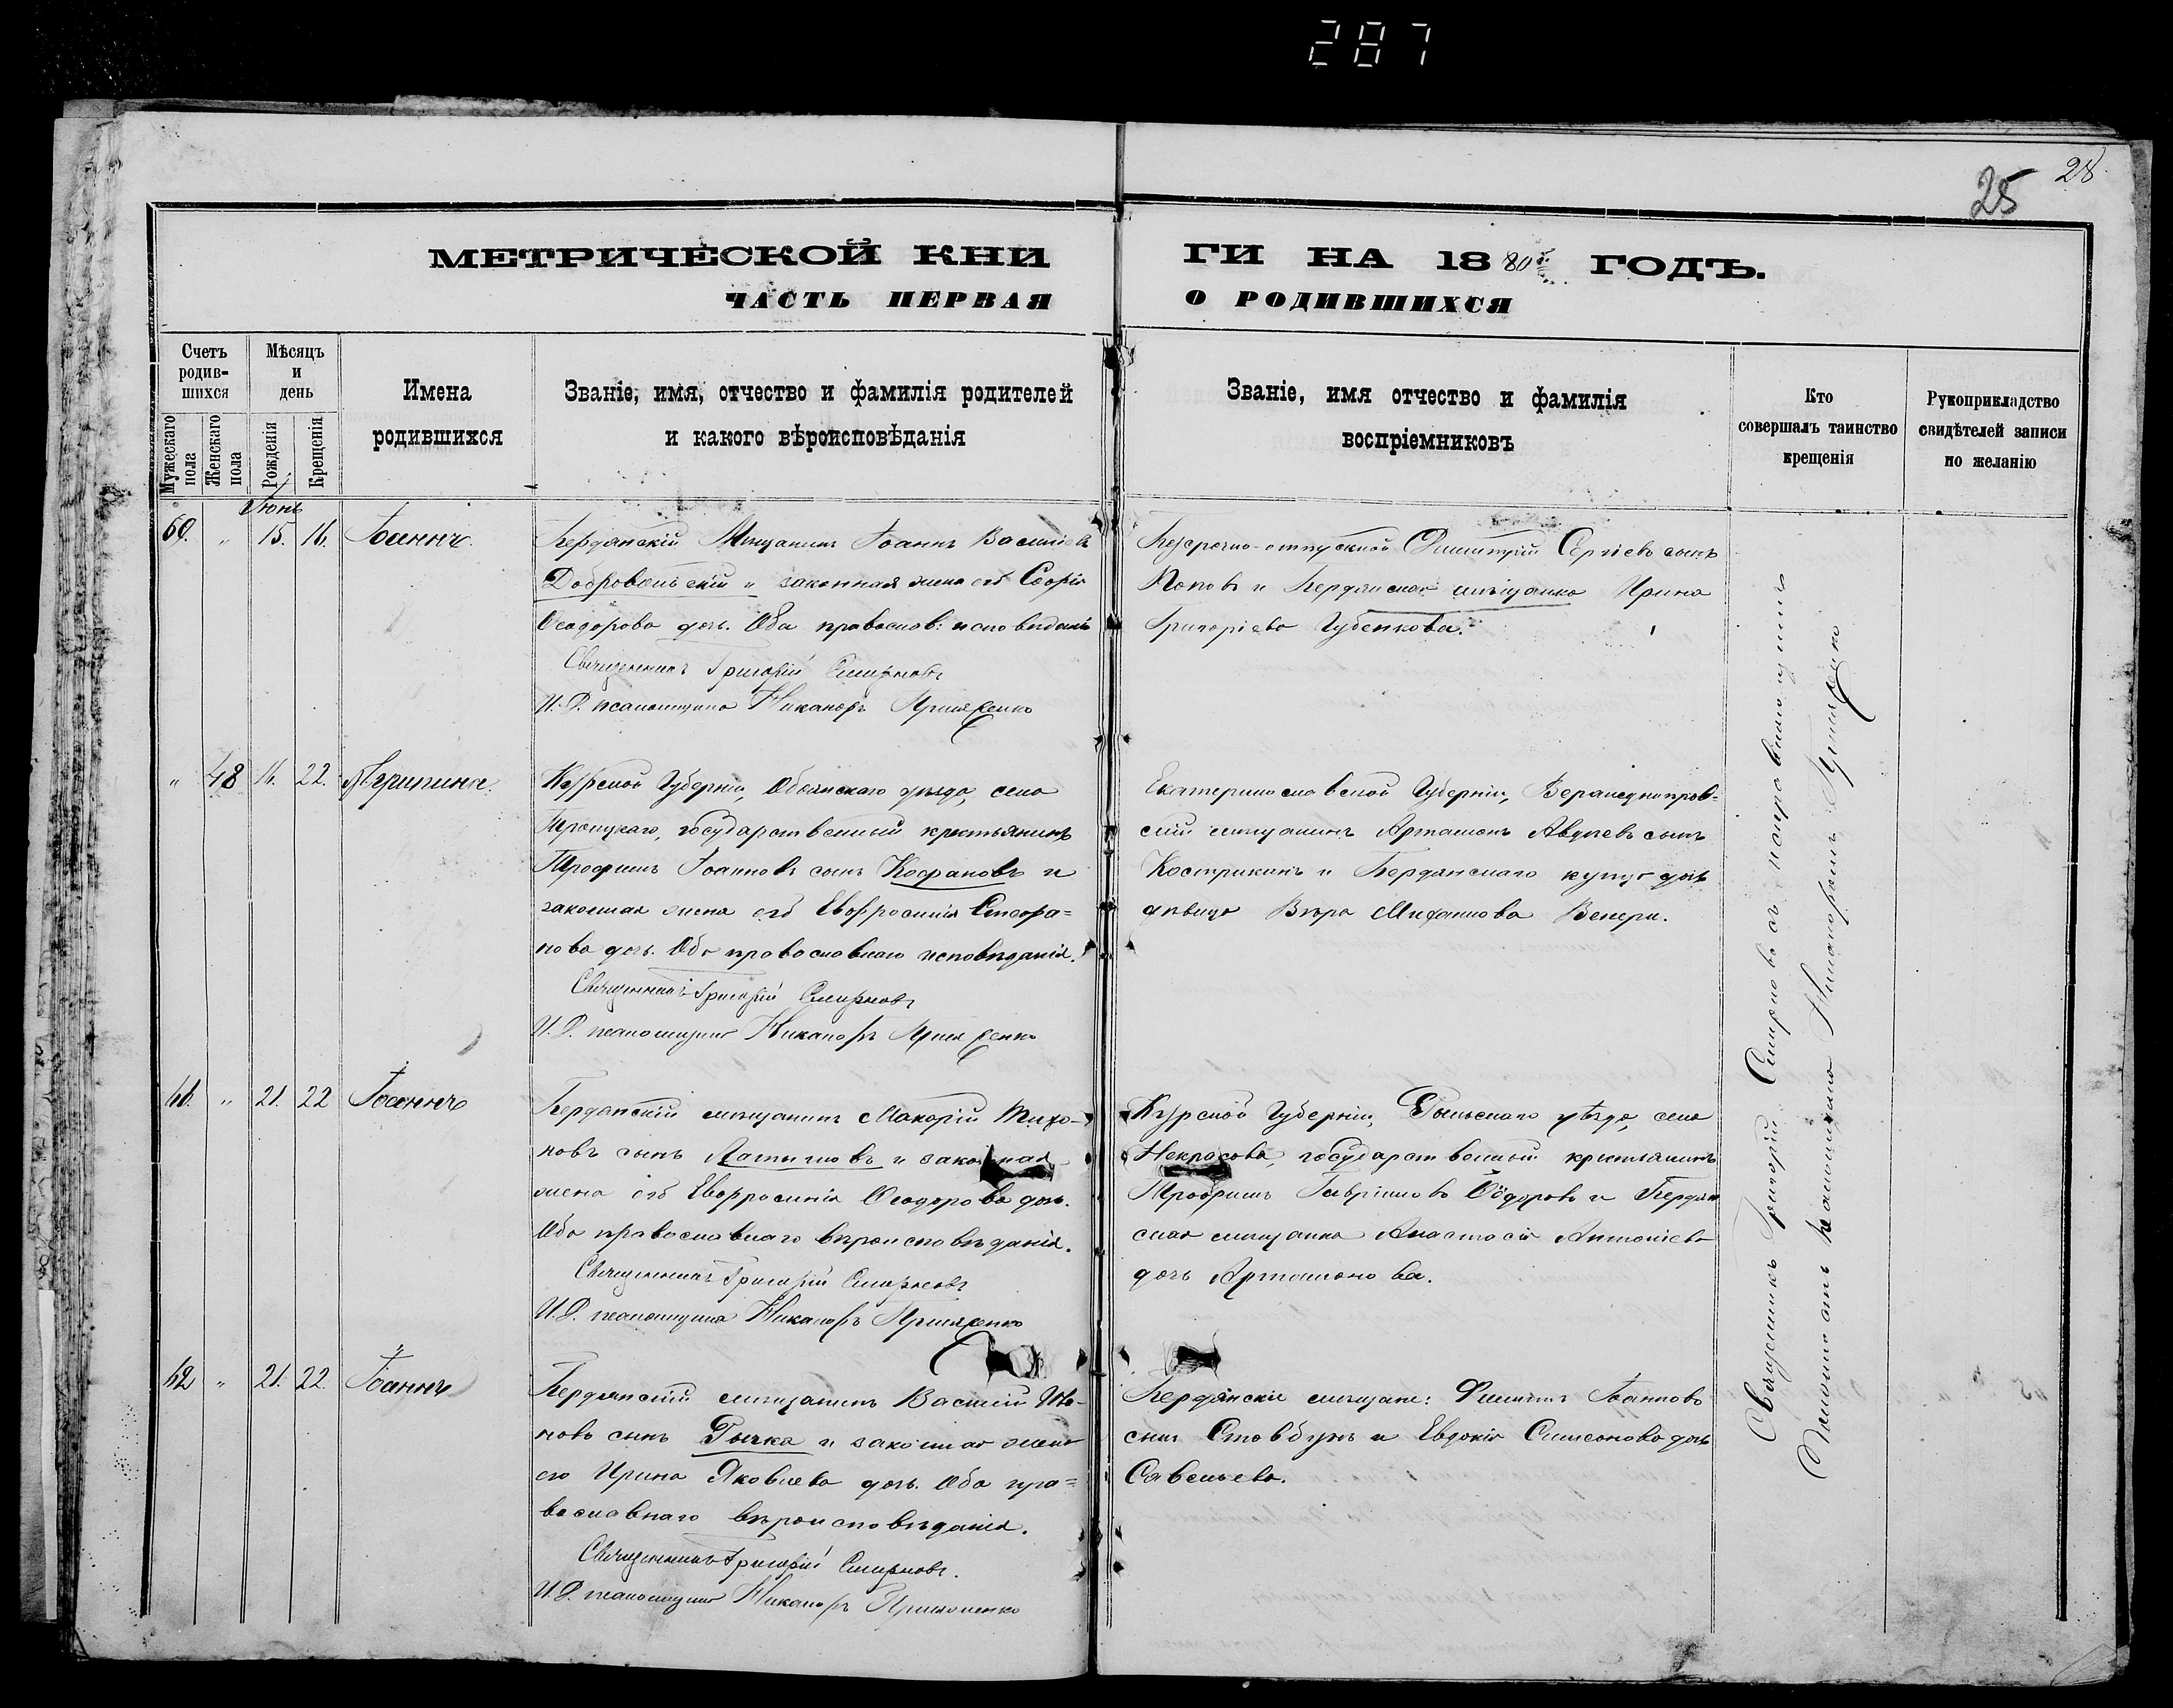 287
28
25
МЕТРИЧЕСКОЙ КНИ ГИ НА 1880й ГОДЪ.
ЧАСТЬ ПЕРВАЯ О РОДИВШИХСЯ
Счетъ родив-шихся
Мужескаго пола
Женскаго пола
Мѣсяцъ и день
Рожденія
Крещенія
Имена родившихся
Званіе, имя, отчество и фамилія родителей
и какого вѣроисповѣданія
Званіе, имя отчество и фамилія
воспріемниковъ
Кто
совершалъ таинство
крещенія
Рукоприкладство
свидѣтелей записи
по желанію
Іюнь
60. " 15. 16. Іоаннъ.
Бердянскій Мѣщанинъ Іоаннъ Василіевъ
Добровольскій и законная жена его Софія
Ѳеодорова дочь. Оба православ: исповѣданія
Священникъ Григорій Смирновъ
И. Д. псаломщика Никаноръ
Безсрочно-отпускной Димитрій Сергіевъ сынъ
Поповъ и Бердянская мѣщанка Ирина
Григоріева Губенкова.
" 48 16. 22. Агрипина.
Курской Губерніи, Обоянскаго уѣзда, села
Троицкаго, государственный крестьянинъ
Трофимъ Іоанновъ сынъ Кофановъ и
законная жена его Евфросинія Стефа=
нова дочь. Оба православнаго исповѣданія.
Священникъ Григорій Смирновъ
И. Д. псаломщика Никаноръ
Екатеринославской Губерніи, Верхнеднѣпров=
скій мѣщанинъ Артамонъ Авдѣевъ сынъ
Кострикинъ и Бердянскаго купца дочь
дѣвица Вѣра Михайлова Венери.
61. " 21. 22 Іоаннъ
Бердянскій мѣщанинъ Макарій Тихо-
новъ сынъ Латышовъ и законная
жена его Евфросинія Ѳеодорова дочь.
Оба православнаго вѣроисповѣданія.
Священникъ Григорій Смирновъ
И. Д. псаломщика Никаноръ
Курской Губерніи, Рыльскаго уѣзда, села
Некрасова, государственный крестьянинъ
Трофимъ Гавріиловъ Ѳедоровъ и Бердян
ская мѣщанка Анастасія Антоніева
дочь Артамонова.
62 " 21. 22. Іоаннъ
Бердянскій мѣщанинъ Василій Ива-
новъ сынъ Гычка и законная жена
его Ирина Яковлева дочь. Оба пра=
вославнаго вѣроисповѣданія.
Священникъ Григорій Смирновъ.
И. Д. псаломщика Никаноръ
Бердянскіе мѣщане: Филиппъ Іоанновъ
сынъ Стовбунъ и Евдокія Симеонова дочь
Савельева.
Священникъ Григорій Смирновъ съ исправляющимъ
должность псаломщика Никаноромъ